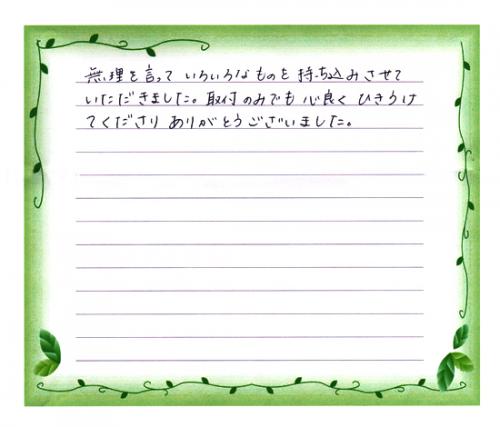 無理を言って いろいろなものを 持ち込みさせて
いただきました。取付のみでも 心良く ひきうけ
てくださり ありがとうございました。